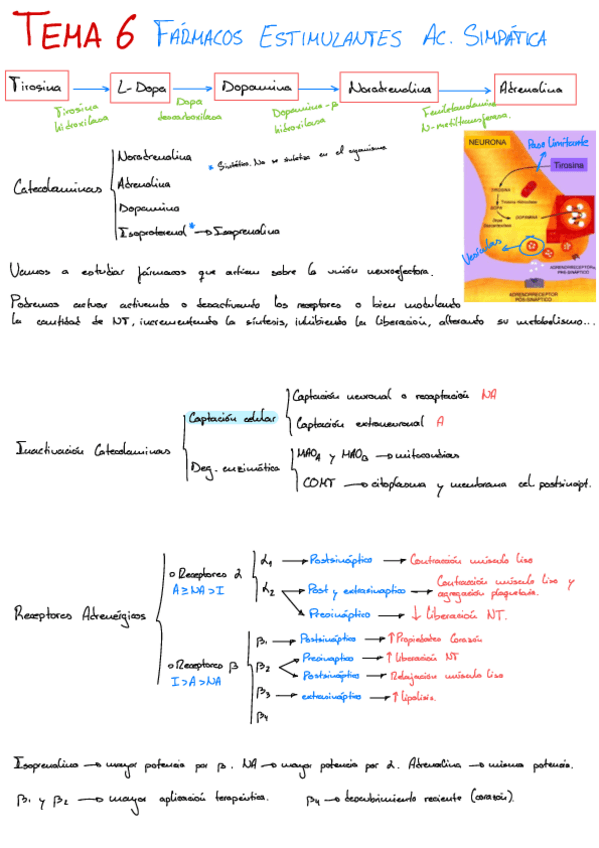 TEMA 6 FÁRMACOS ESTIMULANTES AC. SIMPÁTICA
Tirosina → L-Dopa → Dopamina → Noradrenalina → Adrenalina
Tirosina hidroxilasa
Dopa descarboxilasa
Dopamina-β hidroxilasa
Feniletanolamina N-metiltransferasa.
Catecolaminas
Noradrenalina
Adrenalina
Dopamina
Isoproterenol * → Isoprenalina
* Sintético. No se sintetiza en el organismo
NEURONA
Paso limitante
Tirosina
TIROSINA
Tirosina hidroxilasa
DOPA
DOPAMINA
Vesículas
ADRENORRECEPTOR PRE-SINÁPTICO
ADRENORRECEPTOR POS-SINÁPTICO
Vamos a estudiar fármacos que actúen sobre la unión neuroefectora.
Podremos actuar activando o desactivando los receptores o bien modulando
la cantidad de NT, incrementando la síntesis, inhibiendo la liberación, alterando su metabolismo...
Inactivación Catecolaminas
Captación celular
Captación neuronal o recaptación NA
Captación extraneuronal A
Deg. enzimática
MAOA y MAOB → mitocondrias
COMT → citoplasma y membrana cel postsinápt.
Receptores Adrenérgicos
o Receptores α
A ≥ NA > I
α1 → Postsináptico → Contracción músculo liso
α2 → Post y extrasináptico → Contracción músculo liso y agregación plaquetaria.
Presináptico → ↓ Liberación NT.
o Receptores β
I > A > NA
β1 → Postsináptico → ↑ Propiedades Corazón
β2 → Presináptico → ↑ liberación NT
Postsináptico → Relajación músculo liso
β3 → extrasináptico → ↑ Lipolisis.
β4
Isoprenalina → mayor potencia por β. NA → mayor potencia por α. Adrenalina → misma potencia.
β1 y β2 → mayor aplicación terapéutica. β4 → descubrimiento reciente (corazón).